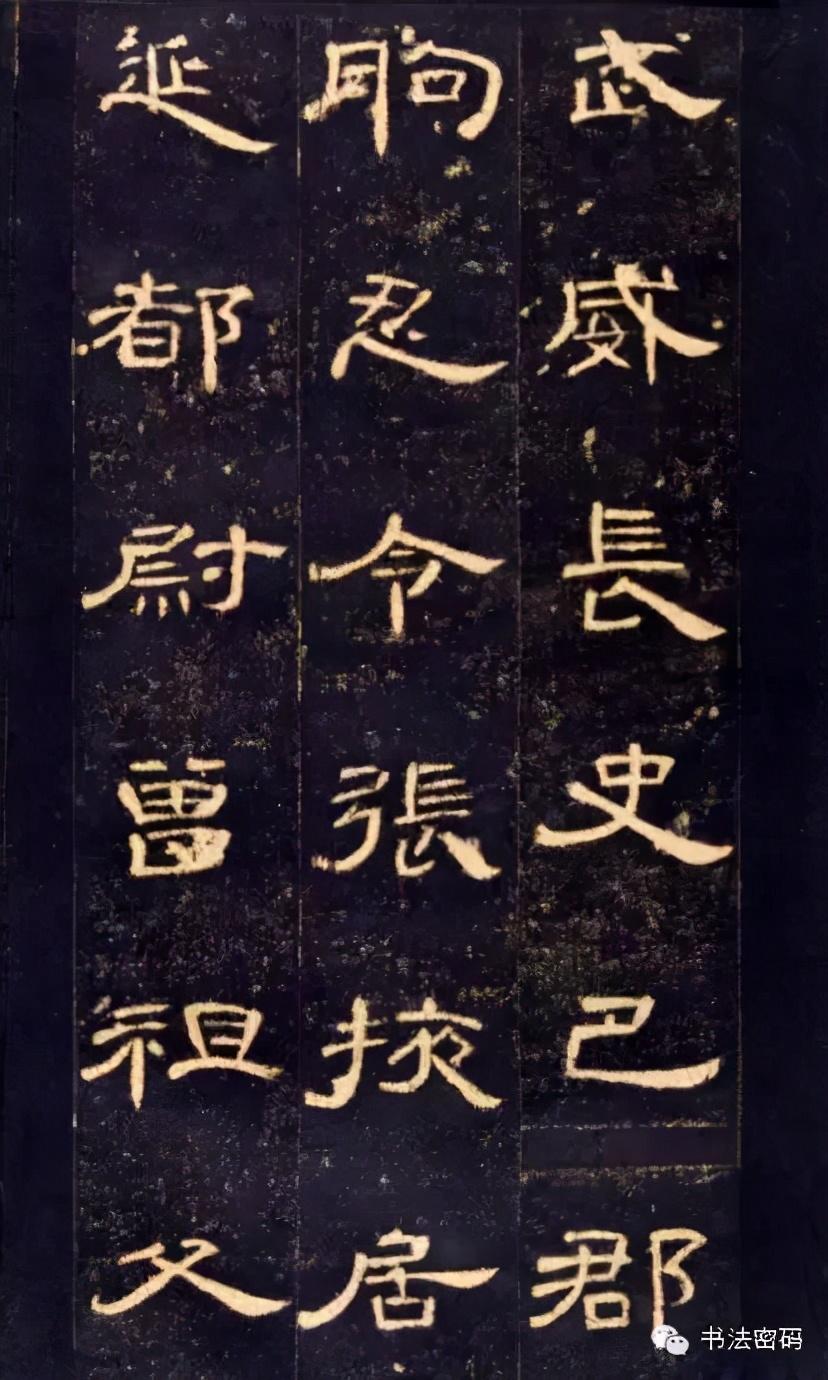 武威長史巴郡
朐忍令張掖居
延都尉曾祖父
书法密码